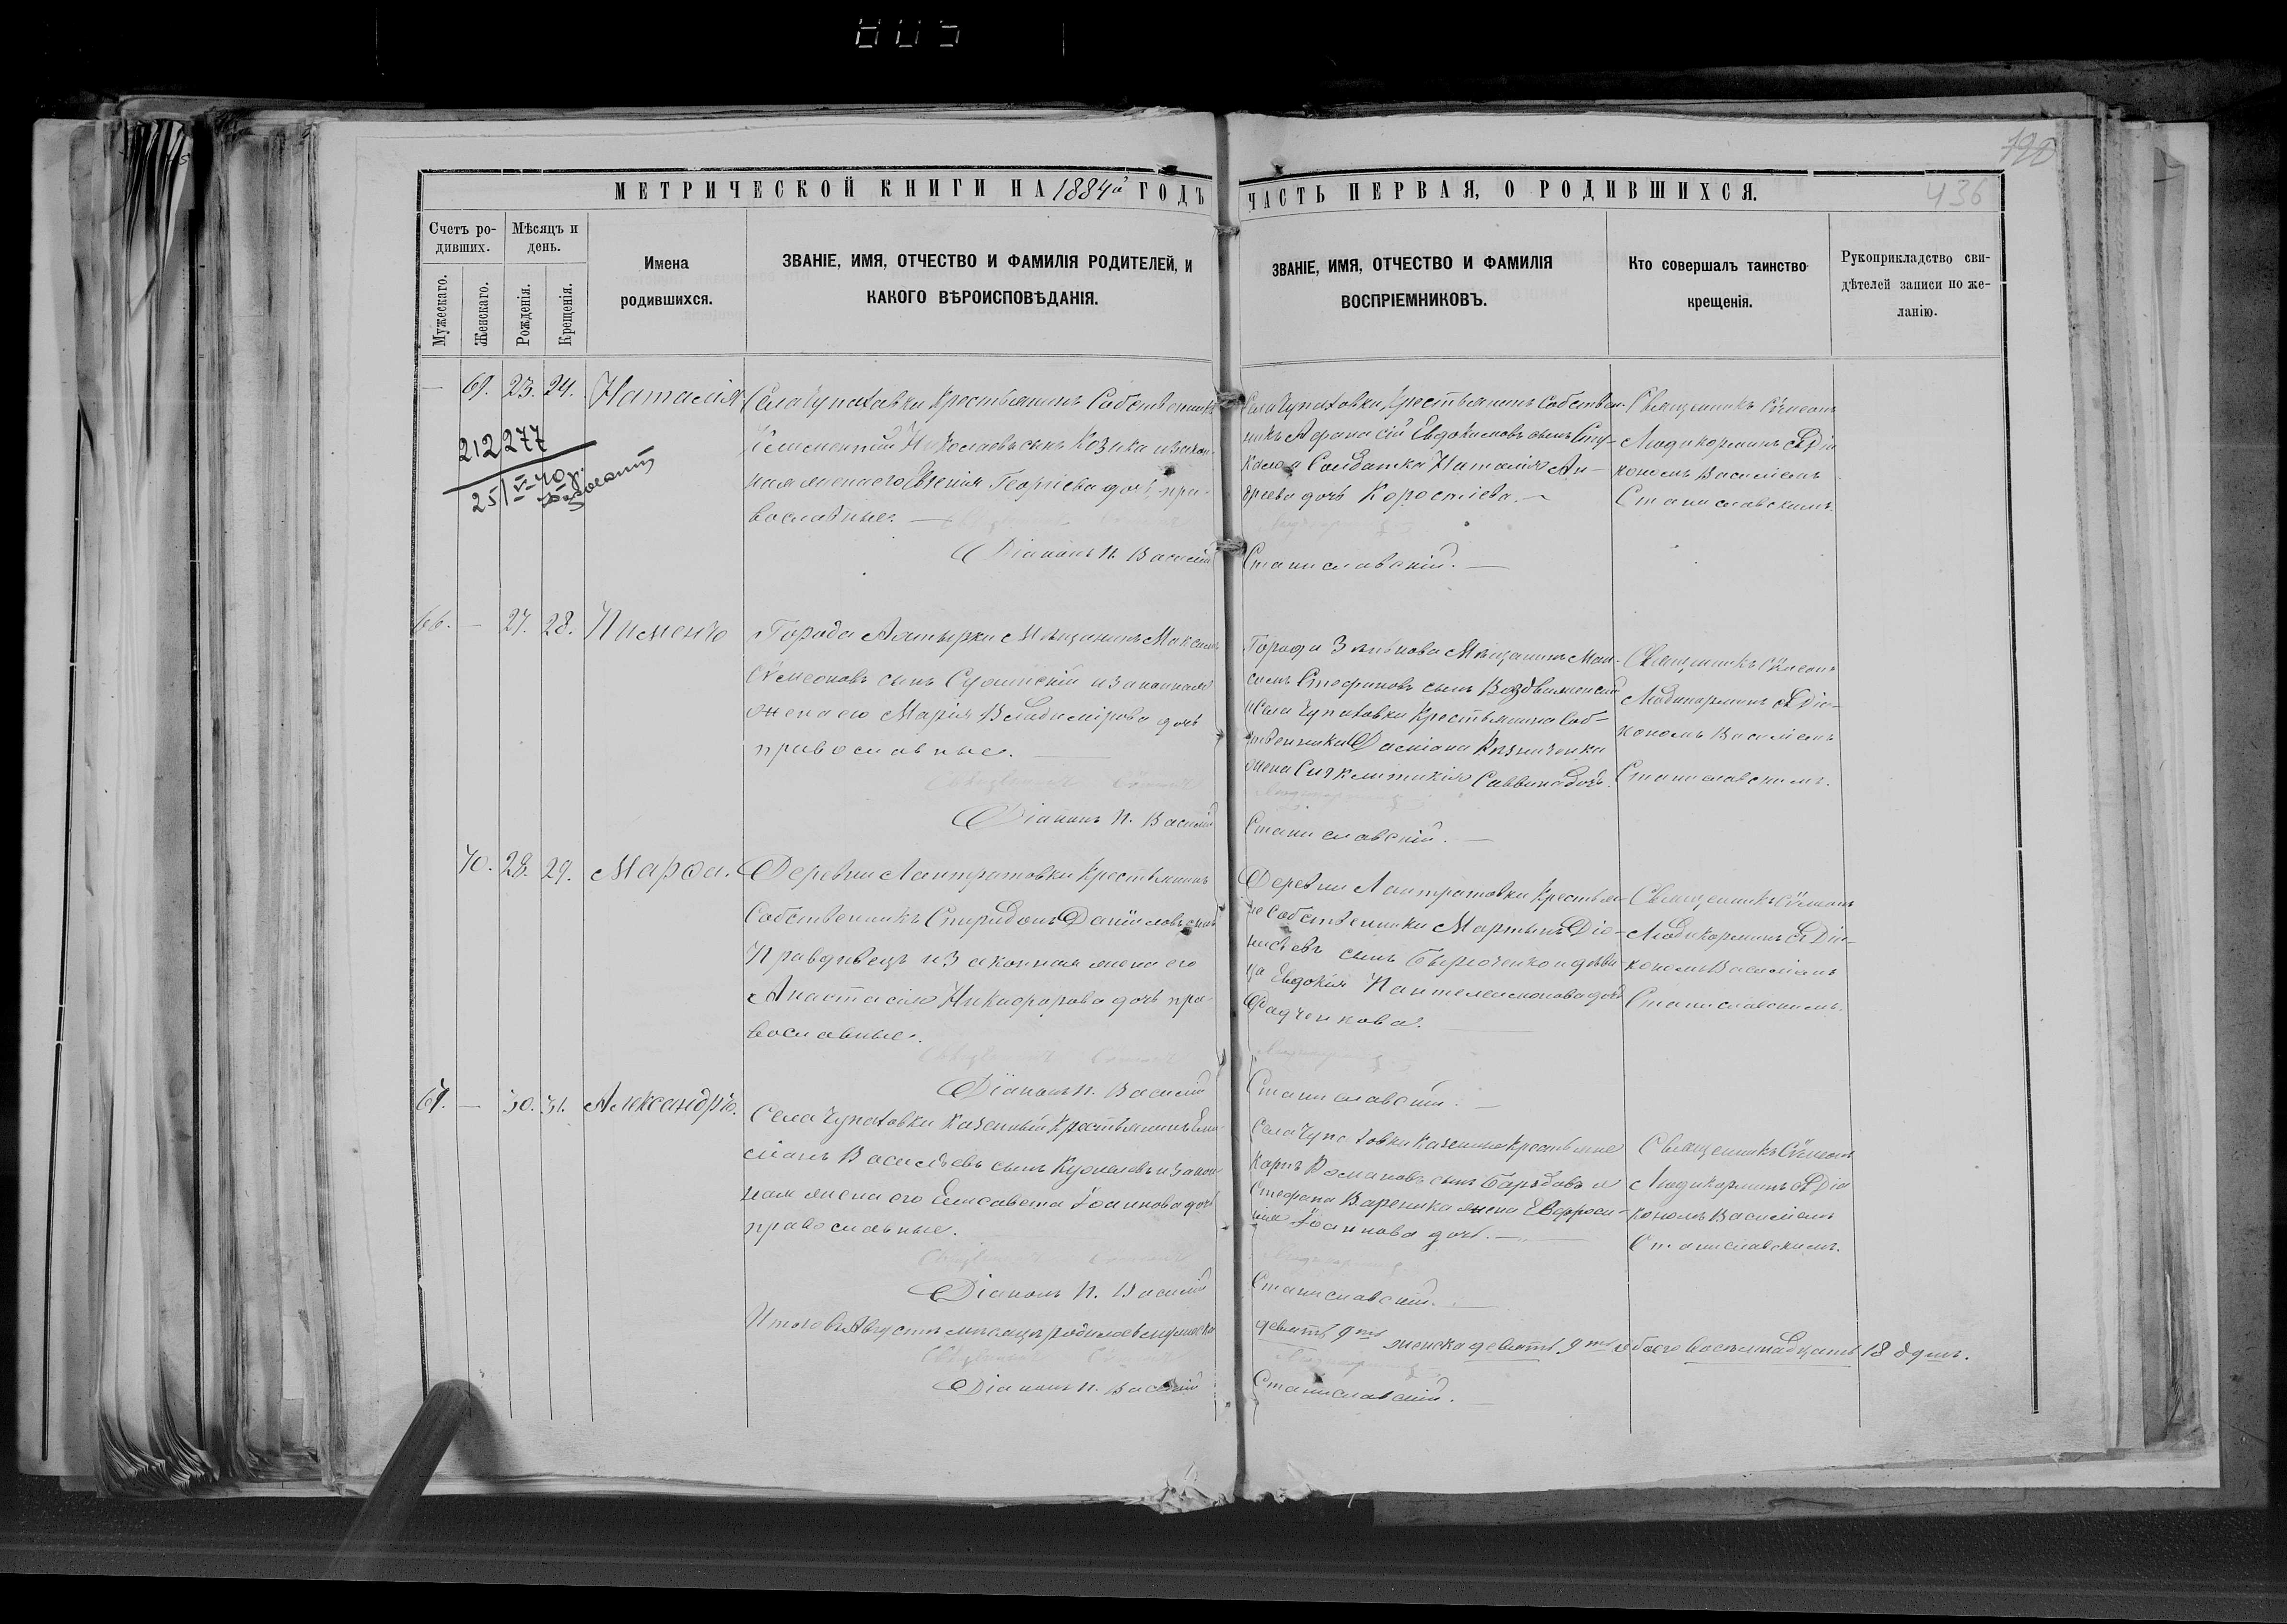 805
190
МЕТРИЧЕСКОЙ КНИГИ НА 1884й ГОДЪ
ЧАСТЬ ПЕРВАЯ, О РОДИВШИХСЯ.
436
Счетъ ро-
дивших.
Мужескаго.
Женскаго.
Мѣсяцъ и
день.
Рожденія.
Крещенія.
Имена
родившихся.
ЗВАНІЕ, ИМЯ, ОТЧЕСТВО И ФАМИЛІЯ РОДИТЕЛЕЙ, И
КАКОГО ВѢРОИСПОВѢДАНІЯ.
ЗВАНІЕ, ИМЯ, ОТЧЕСТВО И ФАМИЛІЯ
ВОСПРІЕМНИКОВЪ.
Кто совершалъ таинство
крещенія.
Рукоприкладство сви-
дѣтелей записи по же-
ланію.
— 69. 23. 24. Наталія
212277
25/V-40 г.
Села Чупаховки Крестьянинъ Собственникъ
Николаевъ сынъ Козика и закон-
ная жена его Евгенія Георгіева дочь, пра-
вославные. —
Діаконъ П. Василій
Села Чупаховки, Крестьянинъ Собствен-
никъ Афанасій Евдокимовъ сынъ
и Солдатка Наталія Ан-
дреева дочь Коростіева. —
Станиславскій. —
Священникъ Сѵмеонъ
Людикорминъ съ Діа
кономъ Василіемъ
Станиславскимъ.
66. — 27. 28. Пименъ
Города Ахтырки Мѣщанинъ Максимъ
Сѵмеоновъ сынъ и законная
жена его Марія Владимірова дочь
православные. —
Діаконъ П. Василій
Города Зѣнькова Мѣщанинъ Мак-
симъ Стефановъ сынъ Воздвиженскій
и Села Чупаховки Крестьянина Соб-
ственника Даміана
жена Сигклитикія Саввина дочь.
Станиславскій. —
Священникъ Сѵмеонъ
Людикорминъ съ Діа-
кономъ Василіемъ
Станиславскимъ.
70. 28. 29. Марѳа.
Деревни Лантратовки Крестьянинъ
Собственникъ Спиридонъ Даніиловъ сынъ
Правдивецъ и законная жена его
Анастасія Никифорова дочь пра-
вославные.
Діаконъ П. Василій
Деревни Лантратовки Крестья-
не Собственники Мартынъ Діо-
нисьевъ сынъ и дѣви-
ца Евдокія Пантелеимонова дочь
Фадченкова. —
Станиславскій. —
Священникъ Сѵмеонъ
Людикорминъ съ Діа-
кономъ Василіемъ
Станиславскимъ.
67. — 30. 31. Александръ.
Села Чупаховки Казенный Крестьянинъ Еми-
сіанъ Васильевъ сынъ и закон-
ная жена его Елисавета Іоаннова дочь
православные.
Діаконъ П. Василій
Села Чупаховки Казенные Крестьяне
Карпъ Романовъ сынъ и
Стефана Вареника жена Евфроси-
нія Іоаннова дочь. —
Станиславскій. —
Священникъ Сѵмеонъ
Людикорминъ съ Діа
кономъ Василіемъ
Станиславскимъ.
Итого въ Августѣ мѣсяцѣ родилось мужеска
девять 9ть женска девять 9ть обоего восемнадцать 18 душъ.
Діаконъ П. Василій
Станиславскій. —